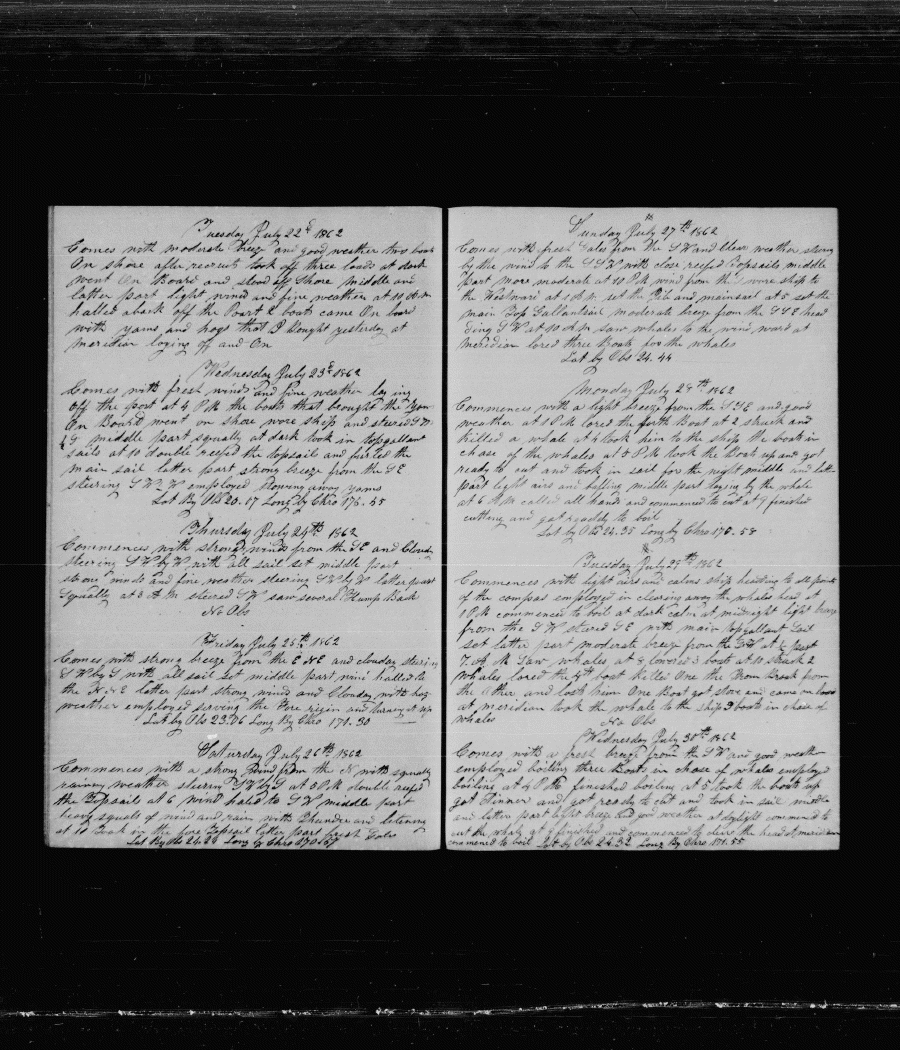 Tuesday July 22d 1862
Comes with moderate breeze and good weather two boats
On shore after recruits took off three loads at dark
went On Board and stood off Shore middle and
latter part light wind and fine weather at 10 AM
halled aback off the Poart 2 boats came On board
with yams and hogs that I bought yesterday at
meridian loging off and On
Wednesday July 23d 1862
Comes with fresh wind and fine weather lay ing
off the port at 4 PM the boats that brought the Yams
On Board went on shore wore ship and steered S W
middle part squally at dark took in topgallant
sails at 10 double reefed the topsail and furled the
main sail latter part strong breeze from the S E
steering S W W employed stowing away yams
Lat By Obs 20.17 Long by Chro 176.55
Thursday July 24th 1862
Commences with strong winds from the S E and Cloudy
steering S W by W with all sail set middle part
strong winds and fine weather steering S W by W latter part
Squally at 8 A.M steered S W saw several Hump Back
No Obs
Friday July 25th 1862
Comes with strong breeze from the E N E and clouday steering
S W by S with all sail Set middle part wind halled to
the N N E latter part strong wind and Clouday with hazy
weather employed serving the Fore rigin and turning it up
Lat by Obs 23.06 Long By Chro 171.30
Saturday July 26th 1862
Commences with a strong Wind from the N with squally
rainny weather steering S W by S at 3 P.M double reefed
the Topsails at 6 wind haled to S W middle part
heavy squals of wind and rain with Thunder and litening
at 10 Took in the fore Topsail latter part fresh Gales
Lat By Obs 24.28 Long by Chro
Sunday July 27th 1862
Comes with fresh Gales from the S W and Clear weather steering
by the wind to the S S W with close reefed Topsails middle
part more moderate at 10 P.M wind from the S wore ship to
the Westward at 4 A.M set the Jib and mainsail at 5 set the
main Top Gallantsail moderate breeze from the S S E head
ding S W at 10 A.M saw whales to the wind ward at
meridian lored three Boats for the whales
Lat by Obs 24.44
Monday July 28th 1862
Commences with a light breeze from the S S E and good
weather at 1 P.M lored the forth Boat at 2 struck and
killed a whale at 4 took him to the ship the boats in
chase of the whales at 5 P.M took the Boats up and got
ready to cut and took in sail for the night middle and latter
part light airs and baffling middle part laying by the whale
at 6 A.M called all hands and commenced to cut at 9 finished
cutting and got readdy to boil
Lat by Obs 24.35 Long by Chro 178.58
Tuesday July 29th 1862
Commences with light airs and calms ship heading to all points
of the compas employed in clearing away the whales head at
1 P.M commenced to boil at dark calm at midnight light breeze
from the S W steered S E with main topgallant Sail
set latter part moderate breeze from the S W at 1/2 past
7 A M Saw whales at 8 lowered 3 boat at 11 Struck 2
whales lored the 4th boat killed One the Iron Broak from
the Other and lost him One Boat got stove and came on board
at meridian took the whale to the ship 3 boats in chase of
whales No Obs
Wednesday July 30th 1862
Comes with a fresh breeze from the S W and good weather
employed boiling three boats in chase of whales employed
boiling at 4 P.M finished boiling at 5 took the boats up
got Dinner and got ready to cut and took in sail middle
and latter part light breeze and good weather at daylight commenced to
cut the whale at 9 finished and commenced to clear the head at meridian
commenced to boil Lat by Obs 24.32 Long By Chro 178.55